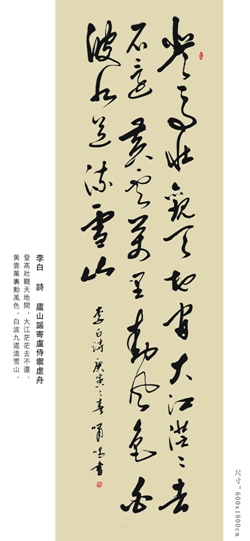 登高壯觀天地間大江茫々去
不還黃雲萬里動風色白
波九道流雪山
李白詩 庚寅之春 嘯鳴書
李白 詩 廬山謠寄盧侍禦虛舟
登高壯觀天地間，大江茫茫去不還。
黃雲萬裏動風色，白波九道流雪山。
尺寸：600x1800cm